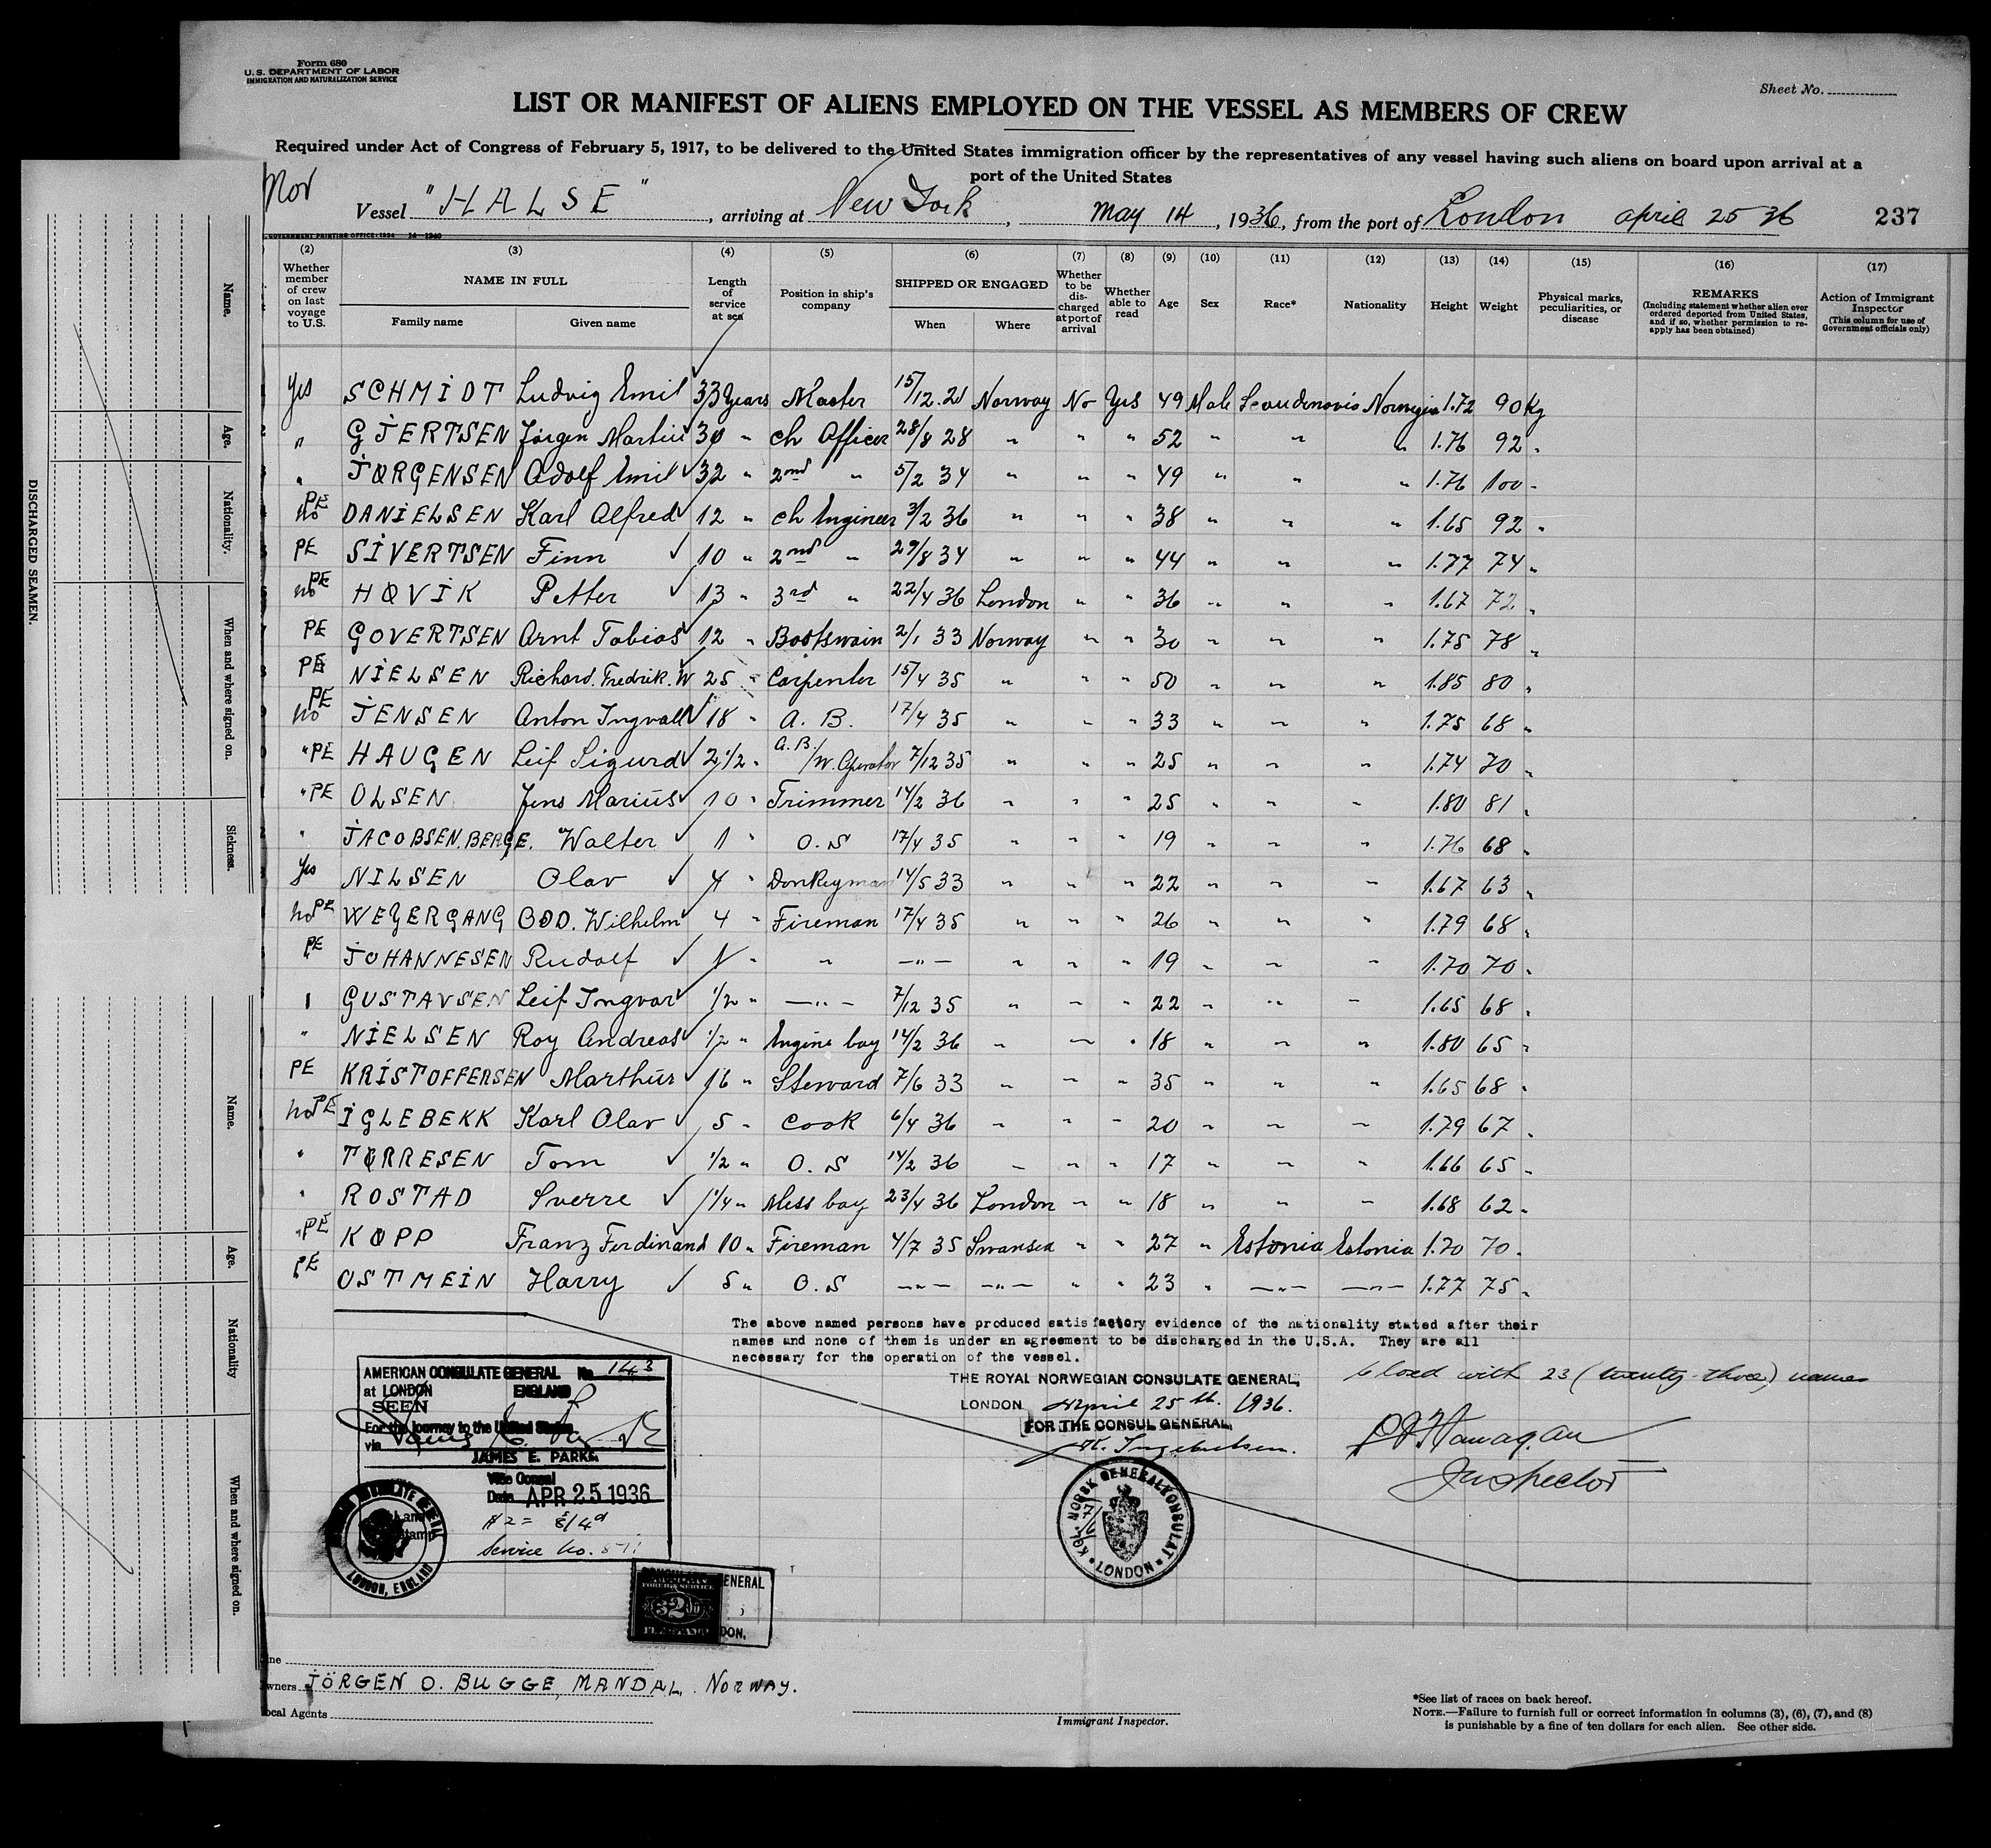 Form 680
U.S. DEPARTMENT OF LABOR
IMMIGRATION AND NATURALIZATION SERVICE
Sheet No.
LIST OR MANIFEST OF ALIENS EMPLOYED ON THE VESSEL AS MEMBERS OF CREW
Required under Act of Congress of February 5, 1917, to be delivered to the United States immigration officer by the representatives of any vessel having such aliens on board upon arrival at a
port of the United States
Nor
Vessel "HALSE", arriving at New York, May 14, 1936, from the port of London april 25 36
237
(2) (3) (4) (5) (6) (7) (8) (9) (10) (11) (12) (13) (14) (15) (16) (17)
Whether member of crew on last voyage to U.S.
NAME IN FULL
Family name Given name
Length of service at sea
Position in ship's company
SHIPPED OR ENGAGED
When Where
Whether to be discharged at port of arrival
Whether able to read
Age
Sex
Race*
Nationality
Height
Weight
Physical marks, peculiarities, or disease
REMARKS
(Including statement whether alien ever ordered deported from United States, and if so, whether permission to reapply has been obtained)
Action of Immigrant Inspector
(This column for use of Government officials only)
Yes SCHMIDT Ludvig Emil 33 Years Master 15/12.21 Norway No Yes 49 Male Scandinavia Norwegia 1.72 90 kg
" GJERTSEN Jörgen Martin 30 " ch Officer 28/8 28 " " " 52 " " " 1.76 92 "
" JØRGENSEN Adolf Emil 32 " 2nd " 5/2 34 " " " 49 " " " 1.76 100 "
No PE DANIELSEN Karl Alfred 12 " ch Engineer 3/2 36 " " " 38 " " " 1.65 92 "
PE SIVERTSEN Finn 10 " 2nd " 29/8 34 " " " 44 " " " 1.77 74 "
no PE HØVIK Petter 13 " 3rd " 22/4 36 London " " 36 " " " 1.67 72 "
PE GOVERTSEN Arnt Tobias 12 " Bootswain 2/1 33 Norway " " 30 " " " 1.75 78 "
PE NIELSEN Richard. Fredrik. W 25 " Carpenter 15/4 35 " " " 50 " " " 1.85 80 "
no PE JENSEN Anton Ingvall 18 " A. B. 17/4 35 " " " 33 " " " 1.75 68 "
" PE HAUGEN Leif Sigurd 2 1/2 " A.B./W. Operator 7/12 35 " " " 25 " " " 1.74 70 "
" PE OLSEN Jens Marius 10 " Trimmer 14/2 36 " " " 25 " " " 1.80 81 "
" JACOBSEN. BERGE. Walter 1 " O.S 17/4 35 " " " 19 " " " 1.76 68 "
Yes NILSEN Olav 4 " Donkeyman 14/5 33 " " " 22 " " " 1.67 63 "
no PE WEYERGANG ODD. Wilhelm 4 " Fireman 17/4 35 " " " 26 " " " 1.79 68 "
PE JOHANNESEN Rudolf 1 " " —"— " " " 19 " " " 1.70 70 "
GUSTAVSEN Leif Ingvar 1/2 " —"— 7/12 35 " " " 22 " " " 1.65 68 "
" NIELSEN Roy Andreas 1/2 " Engine boy 14/2 36 " " " 18 " " " 1.80 65 "
PE KRISTOFFERSEN Marthur 16 " Steward 7/6 33 " " " 35 " " " 1.65 68 "
no PE IGLEBEKK Karl Olav 5 " Cook 6/4 36 " " " 20 " " " 1.79 67 "
" TØRRESEN Tom 1/2 " O.S 14/2 36 " " " 17 " " " 1.66 65 "
" ROSTAD Sverre 1 1/4 " Mess boy 23/4 36 London " " 18 " " " 1.68 62 "
" PE KØPP Franz Ferdinand 10 " Fireman 4/7 35 Swansea " " 27 " Estonia Estonia 1.70 70 "
PE OSTMEIN Harry 5 " O.S —"— —"— " " 23 " —"— —"— 1.77 75 "
The above named persons have produced satisfactory evidence of the nationality stated after their
names and none of them is under an agreement to be discharged in the U.S.A. They are all
necessary for the operation of the vessel.
THE ROYAL NORWEGIAN CONSULATE GENERAL,
LONDON April 25th. 1936.
FOR THE CONSUL GENERAL,
KGL. NORSK GENERALKONSULAT
LONDON
Closed with 23 (twenty-three) names
Inspector
AMERICAN CONSULATE GENERAL No. 143
at LONDON ENGLAND
SEEN
For the journey to the United States
via
JAMES E. PARKS
Vice Consul
Date APR 25 1936
Service No.
LONDON, ENGLAND
FOREIGN SERVICE
owners JÖRGEN O. BUGGE, MANDAL. NORWAY.
Local Agents
Immigrant Inspector.
*See list of races on back hereof.
NOTE.—Failure to furnish full or correct information in columns (3), (6), (7), and (8)
is punishable by a fine of ten dollars for each alien. See other side.
DISCHARGED SEAMEN.
Name.
Age.
Nationality.
When and where signed on.
Sickness.
Name.
Age.
Nationality
When and where signed on.